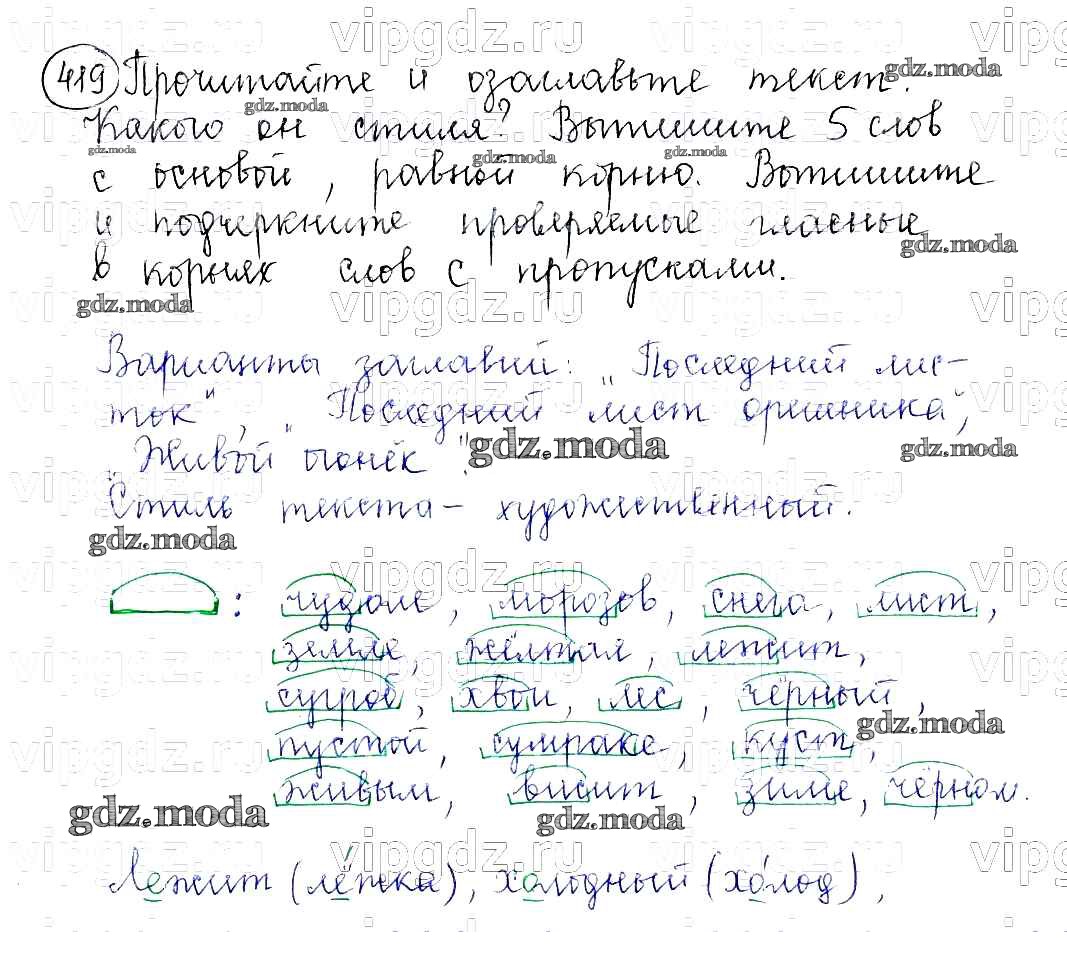 419 Прочитайте и озаглавьте текст.
Какого он стиля? Выпишите 5 слов
с основой, равной корню. Выпишите
и подчеркните проверяемые гласные
в корнях слов с пропусками.
Варианты заглавий: "Последний лис-
ток", "Последний лист орешника",
"Живой огонёк".
Стиль текста – художественный.
: чудом, морозов, снега, лист,
земле, жёлтая, лежит,
сугроб, хвои, лес, чёрный,
пустой, сумраке, куст,
живым, висит, зиме, чёрном.
Лежит (лёжка), холодный (холод),
vipgdz.ru
gdz.moda